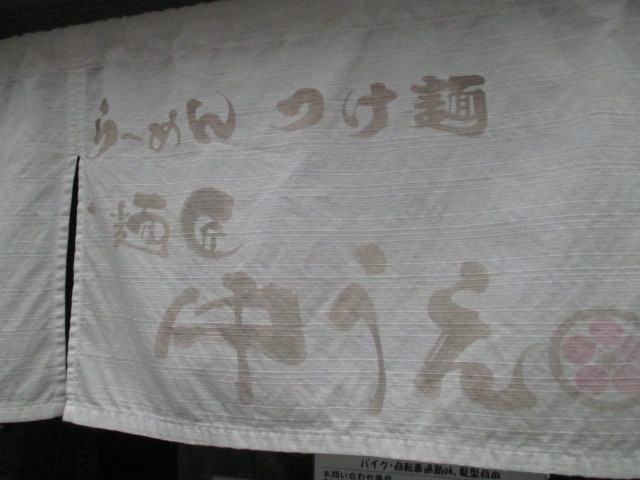 らーめん つけ麺
麺匠
ゆうえん
バイク・自転車通勤OK、髪型自由
お問い合わせ番号